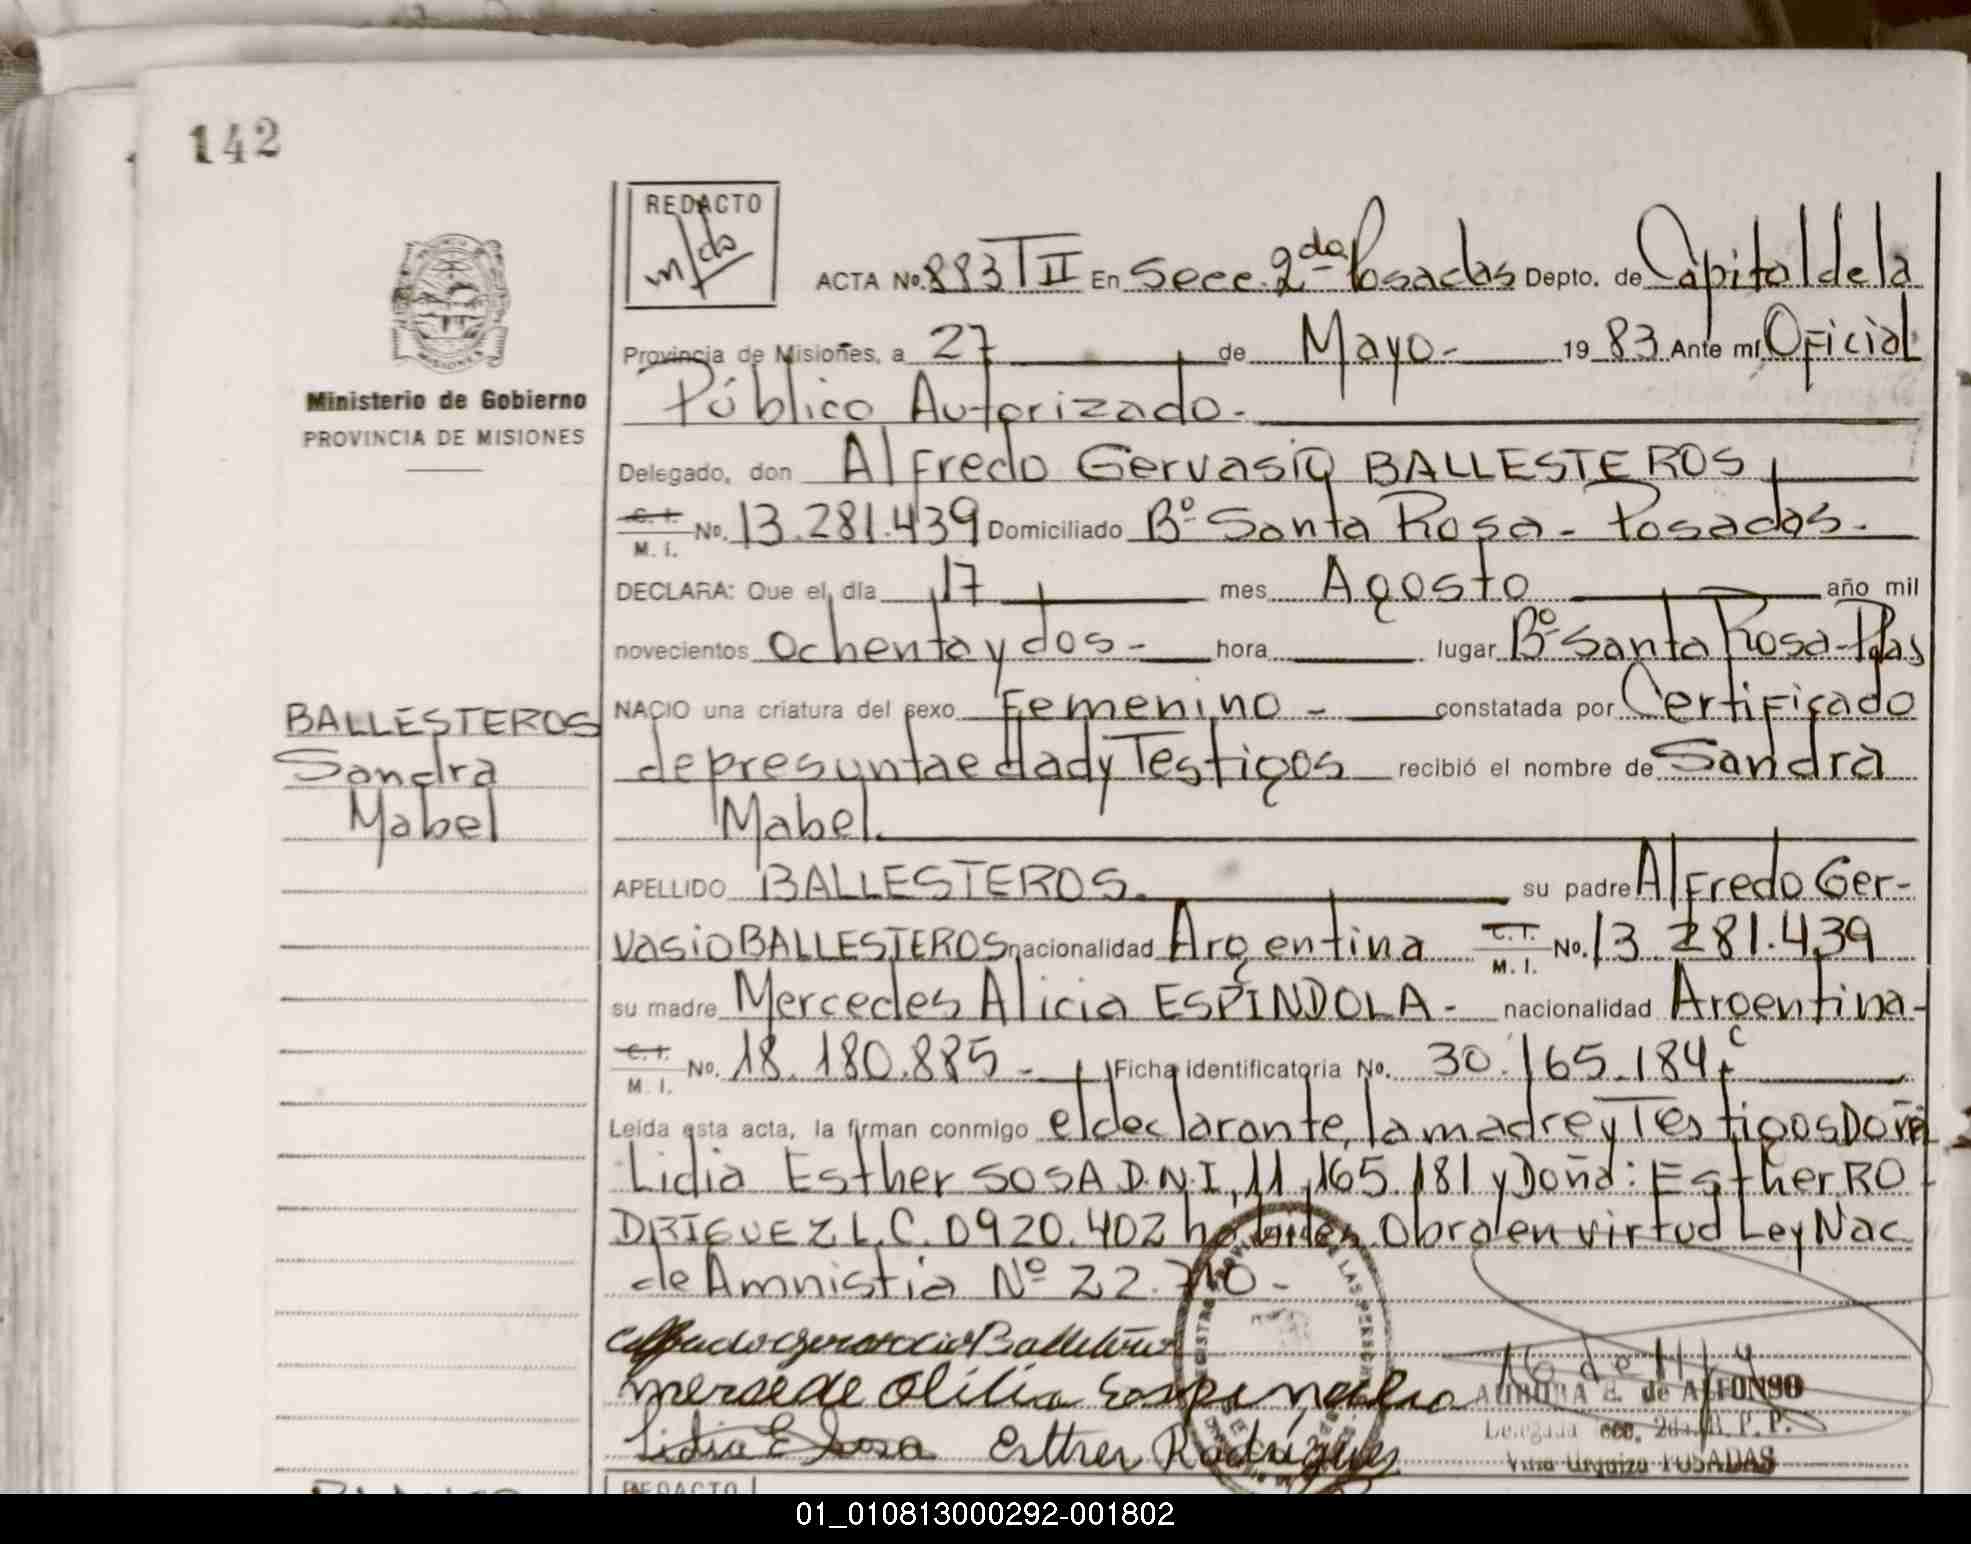 142
REDACTO
ACTA No. 883 T II En Secc. 2da Posadas Depto. de Capital de la
Provincia de Misiones, a 27 de Mayo - 19 83 Ante mí Oficial
Público Autorizado -
Ministerio de Gobierno
PROVINCIA DE MISIONES
Delegado, don Alfredo Gervasio BALLESTEROS
C. I. M. I. No. 13.281.439 Domiciliado Bº Santa Rosa - Posadas.
DECLARA: Que el día 17 mes Agosto año mil
novecientos ochenta y dos - hora lugar Bº Santa Rosa - Pdas
NACIO una criatura del sexo Femenino - constatada por Certificado
de presunta edad y Testigos recibió el nombre de Sandra
Mabel.
BALLESTEROS
Sandra
Mabel
APELLIDO BALLESTEROS. su padre Alfredo Ger-
vasio BALLESTEROS nacionalidad Argentina C. I. M. I. No. 13.281.439
su madre Mercedes Alicia ESPINDOLA - nacionalidad Argentina -
C. I. M. I. No. 18.180.885 - Ficha identificatoria No. 30.165.184
Leída esta acta, la firman conmigo el declarante, la madre y Testigos Doña
Lidia Esther SOSA D.N.I. 11.165.181 y Doña: Esther RO
DRIGUEZ L.C. 0920.402 Obra en virtud Ley Nac
de Amnistia Nº 22.710 -
Lidia E Sosa Esther Rodríguez
AURORA E. de ALFONSO
Delegada sec. 2da. R. P. P.
Villa Urquiza POSADAS
REDACTO
01_010813000292-001802